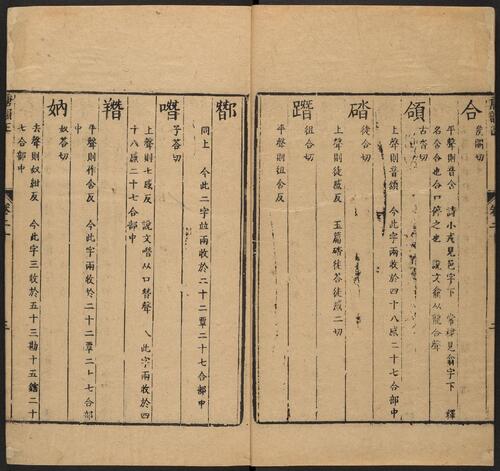 合
矦閤切
平聲則音含 詩小戎見邑字下 常棣見翕字下 釋
名含合也合口停之也 說文龕从龍合聲
頜
古沓切
上聲則音頷 今此字兩收於四十八感二十七合部中
徒合切
上聲則徒感反 玉篇徒荅徒感二切
徂合切
平聲則徂含反
同上 今此二字並兩收於二十二覃二十七合部中
噆
子荅切
上聲則七感反 說文噆从口朁聲 此字兩收於四
十八感二十七合部中
平聲則作含反 今此字兩收於二十二覃二十七合部
中
妠
奴荅切
去聲則奴紺反 今此字三收於五十三勘十五鎋二十
七合部中
唐韻正
卷二十
三